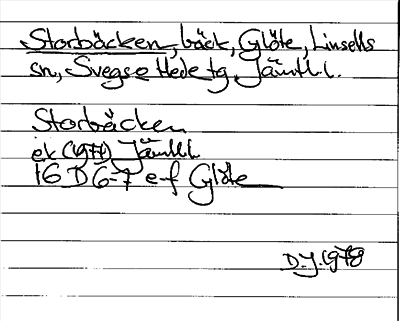 Storbäcken, bäck, Glöte, Linsells
sn, Svegs o Hede tg, Jämtl.l.
Storbäcken
ek (1971) Jämtl.l
16 D 6-7 e-f Glöte
D.J. 1978